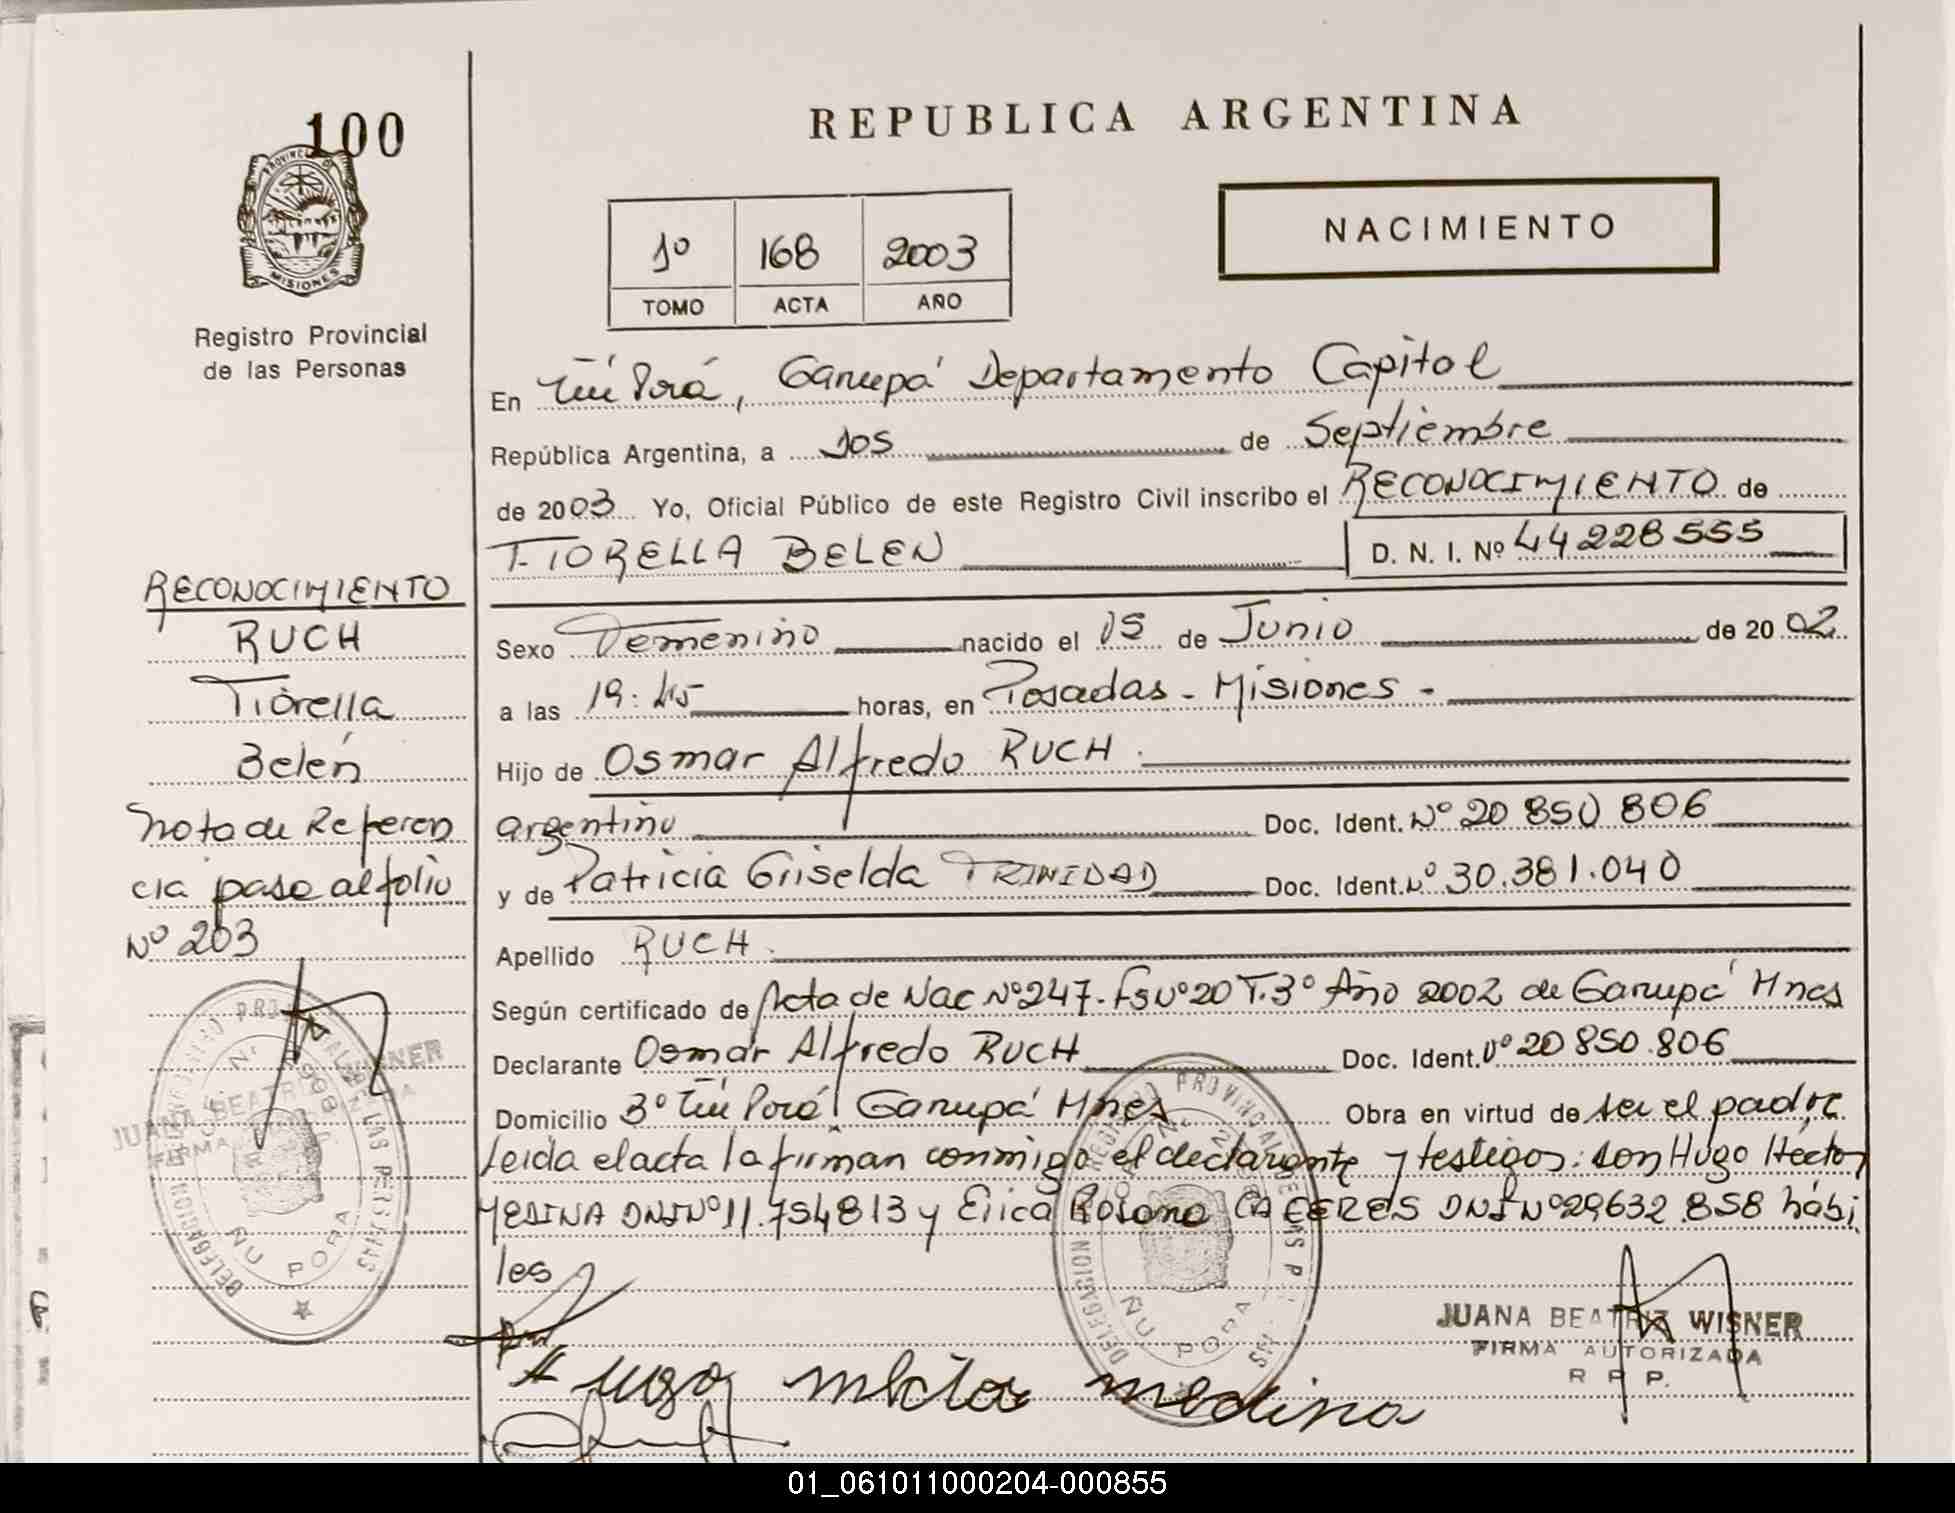 100
PROVINCIA DE
MISIONES
Registro Provincial
de las Personas
RECONOCIMIENTO
RUCH
Fiorella
Belén
Nota de Referen
cia pase al folio
Nº 203
REPUBLICA ARGENTINA
1º 168 2003
TOMO ACTA AÑO
NACIMIENTO
En Ñu Porá, Garupá Departamento Capital
República Argentina, a dos de Septiembre
de 2003 Yo, Oficial Público de este Registro Civil inscribo el RECONOCIMIENTO de
FIORELLA BELEN D. N. I. Nº 44 228 555
Sexo Femenino nacido el 05 de Junio de 2002
a las 19:45 horas, en Posadas - Misiones -
Hijo de Osmar Alfredo RUCH
argentino Doc. Ident. Nº 20 850 806
y de Patricia Griselda TRINIDAD Doc. Ident. Nº 30.381.040
Apellido RUCH
Según certificado de Acta de Nac Nº 247- Fº Nº 20 T. 3º Año 2002 de Garupá Mnes
Declarante Osmar Alfredo RUCH Doc. Ident. Nº 20 850.806
Domicilio Bº Ñu Porá Garupá Mnes Obra en virtud de ser el padre
Leida el acta la firman conmigo el declarante y testigos: son Hugo Héctor
MEDINA DNI Nº 11.754813 y Erica Rosana CACERES DNI Nº 29632.858 hábi
les
JUANA BEATRIZ WISNER
FIRMA AUTORIZADA
R P P.
Hugo Hector medina
DELEGACION REGISTRO PROVINCIAL DE LAS PERSONAS
ÑU PORA
JUANA BEATRIZ WISNER
FIRMA
DELEGACION REGISTRO PROVINCIAL DE LAS P
ÑU PORA
01_061011000204-000855